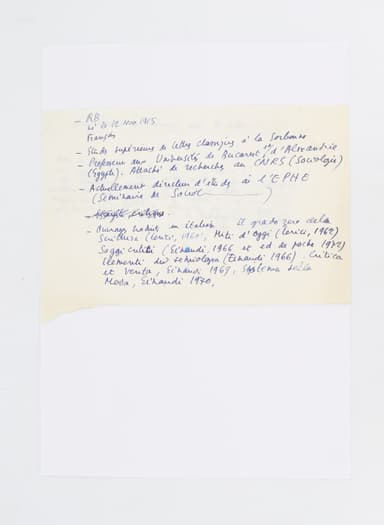 - RB
né le 12 Nov 1915
Français
- Etudes supérieures de lettres classiques à la Sorbonne
- Professeur aux Universités de Bucarest, d'Alexandrie
(Egypte). Attaché de recherches au CNRS (Sociologie)
- Actuellement directeur d'études à l'EPHE
(Séminaire de Sociol )
- Ouvrages traduits en italien. Il grado zero della
Scrittura (Lerici, 1960, Miti d'oggi (Lerici, 1962)
Saggi critici (Einaudi, 1966 et ed de poche (1972)
Elementi di semiologia (Einaudi 1966). Critica
et verità, Einaudi 1969, Sistema della
Moda, Einaudi 1970,